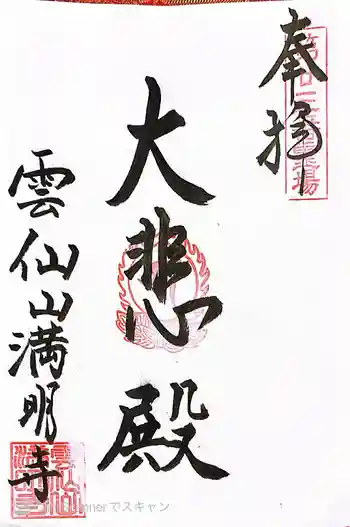 奉拝
大悲殿
雲仙山満明寺
nnerでスキャン